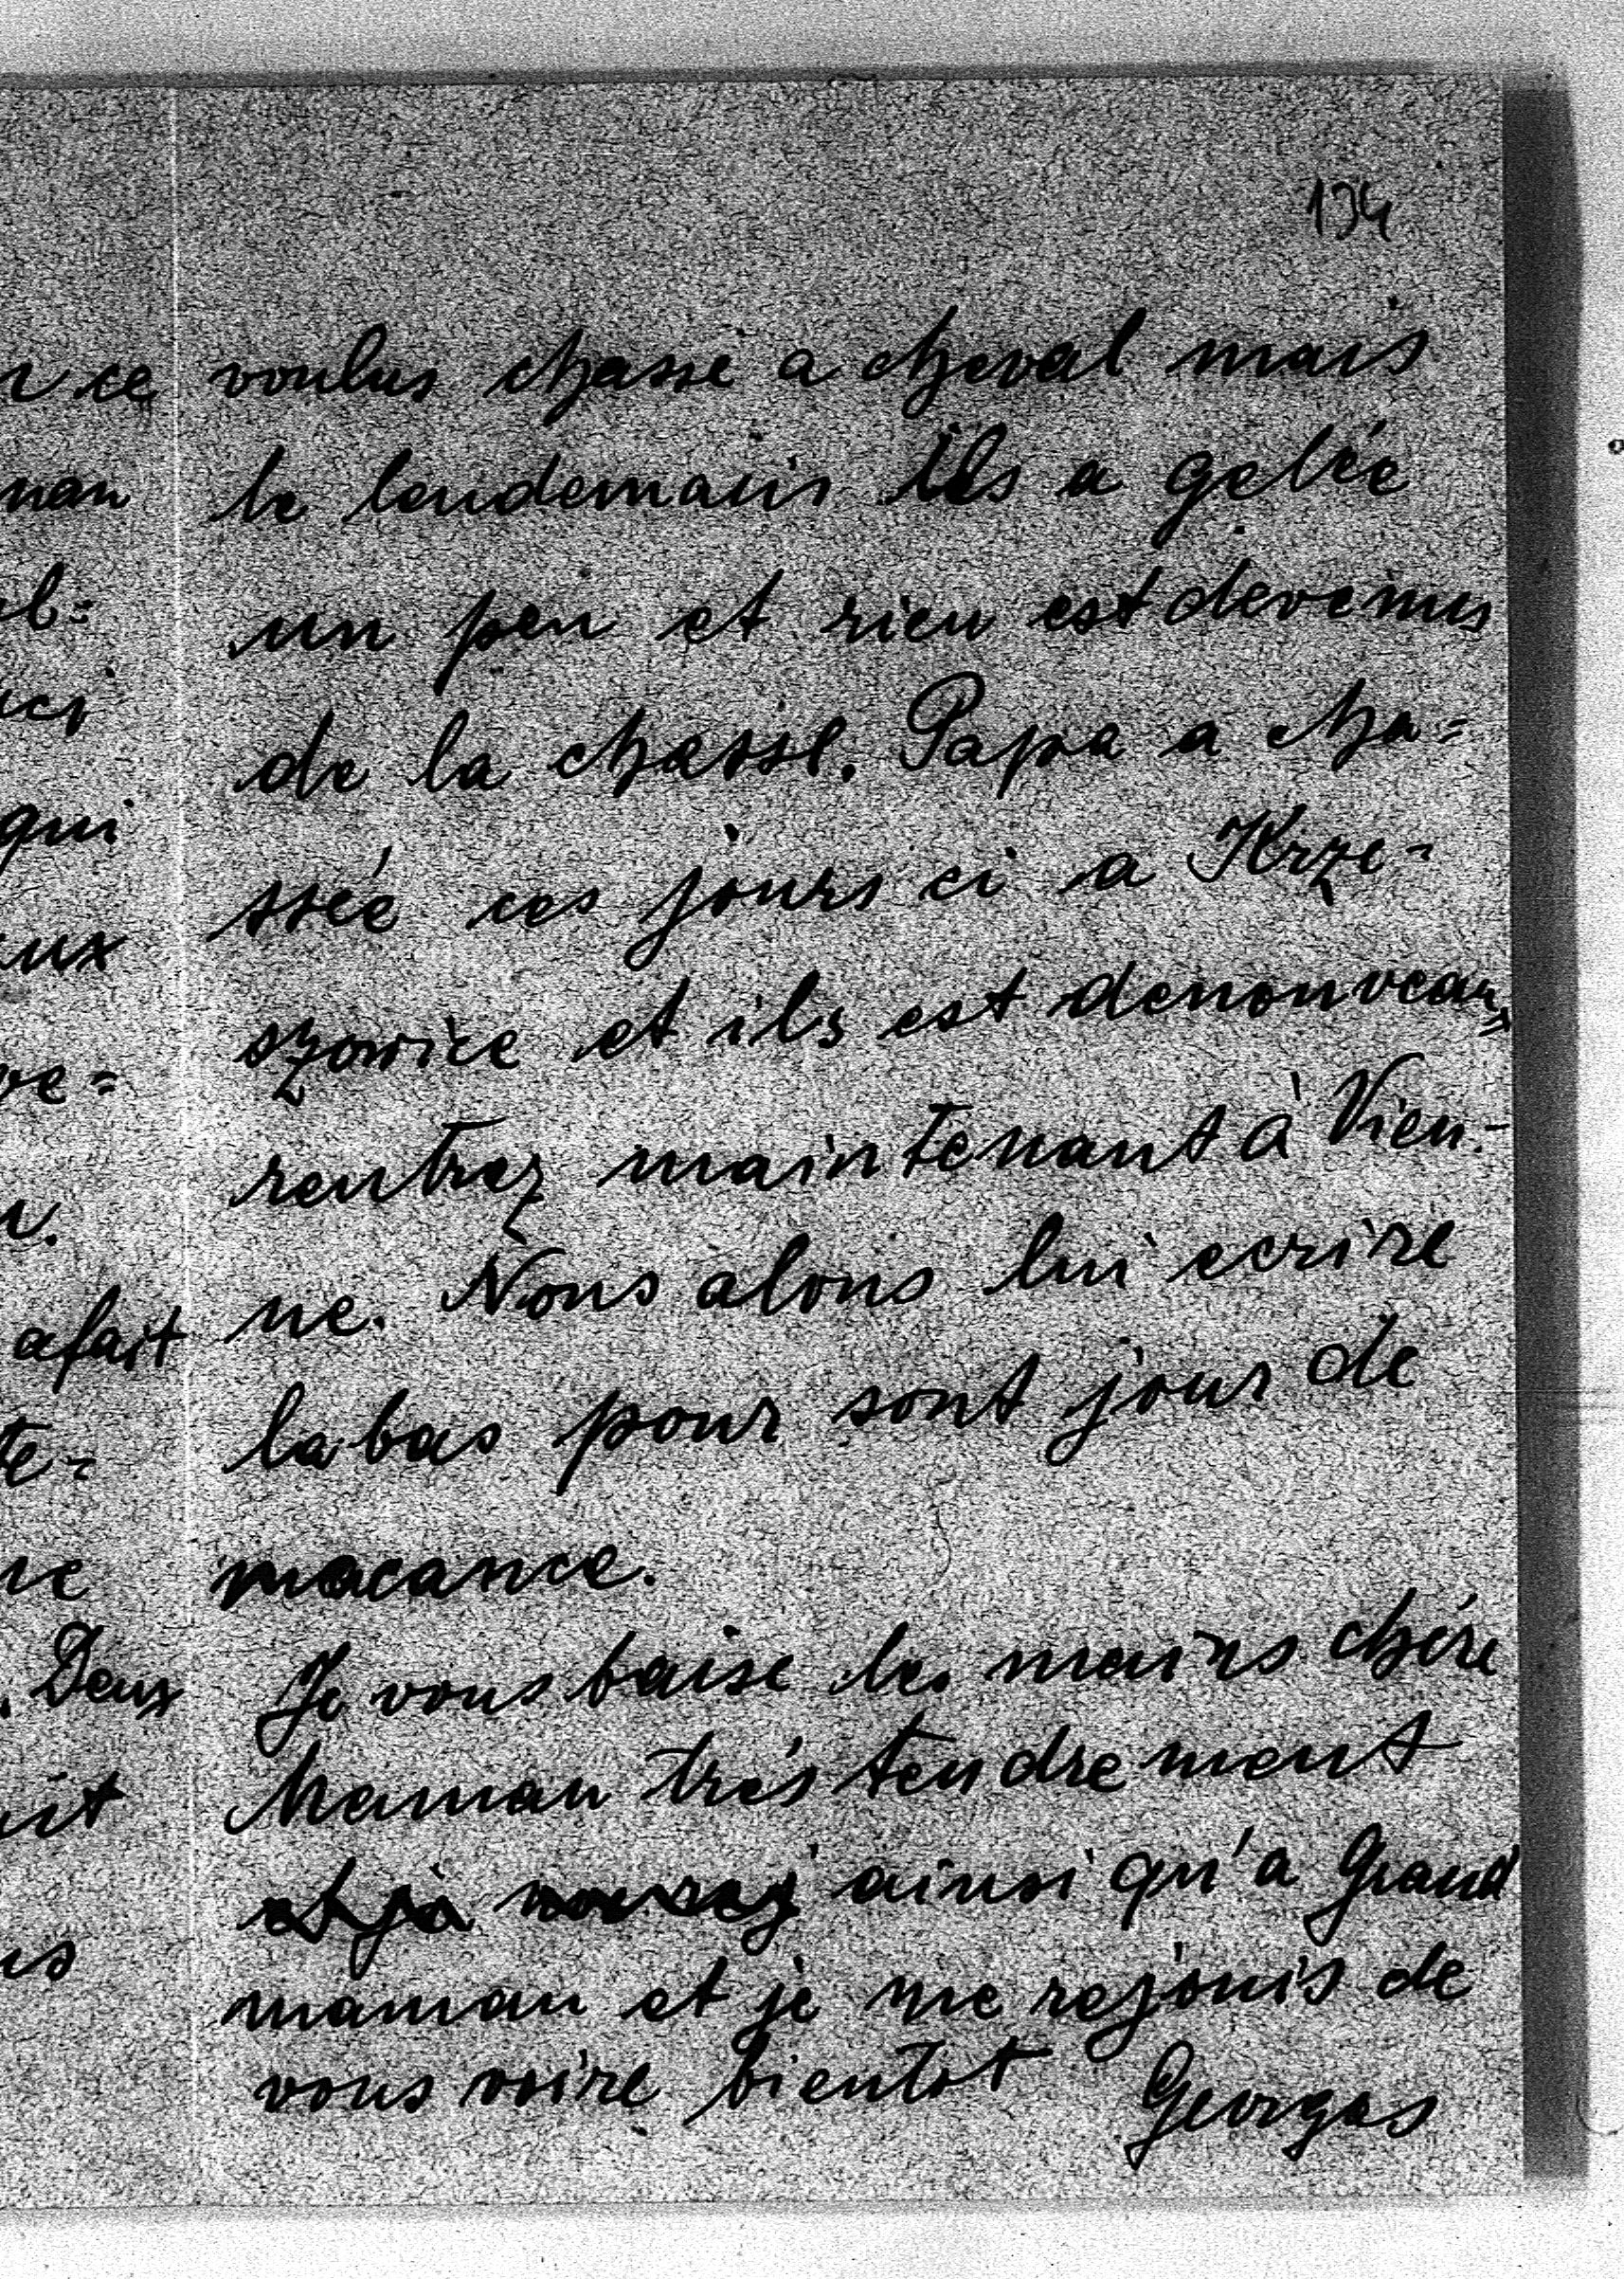 134
n ce voulus chassé a cheval mais
man le lendemain ils a gelée
un peu et rien est devenus
de la chasse. Papa a cha=
qui ssée ces jours ci a Krze-
aux szowice et ils est denouveau
ve= rentrez maintenant à Vien-
ne. Nous alons lui ecrire
a fait labas pour sont jour de
te- nacance.
ne Je vous baise les mains chére
. Deux Maman trés tendrement
ait ainsi qu'a Grand
maman et je me rejouis de
vous voire bientot Georges